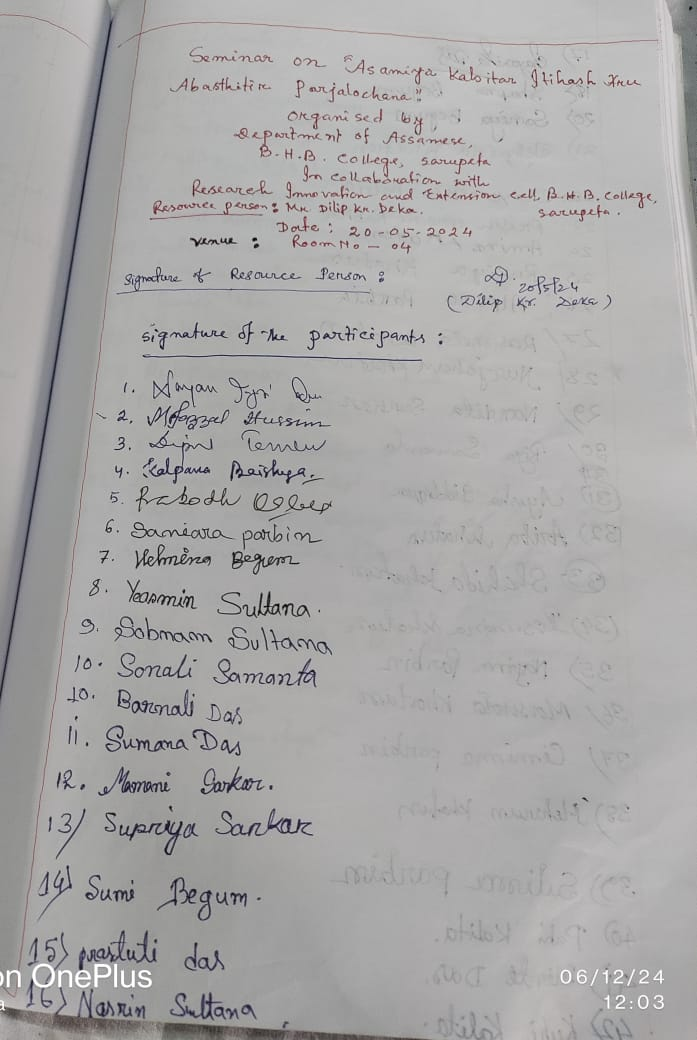 Seminar on "Asamiya Kabitar Itihash Aru
Abasthitir Parjalochana"
Organised by,
Department of Assamese,
B.H.B. College, Sarupeta
In collaboration with
Research Innovation and Extension cell, B.H.B. College,
Sarupeta.
Resource person : Mr. Dilip Kr. Deka.
Date : 20-05-2024
Venue : Room No - 04
Signature of Resource Person :
20/5/24
(Dilip Kr. Deka)
Signature of the participants :
1. Nayan
2. Mofazzal Hussain
3.
4. Kalpana Baishya.
5. Prabodh
6. Saniara parbin
7. Helmina Begum
8. Yeasmin Sultana.
9. Sobnam Sultana
10. Sonali Samanta
10. Barnali Das
11. Sumana Das
12. Mamani Sarkar.
13) Supriya Sarkar
14) Sumi Begum.
15) prastuti das
16) Nasrin Sultana
on OnePlus
06/12/24
12:03